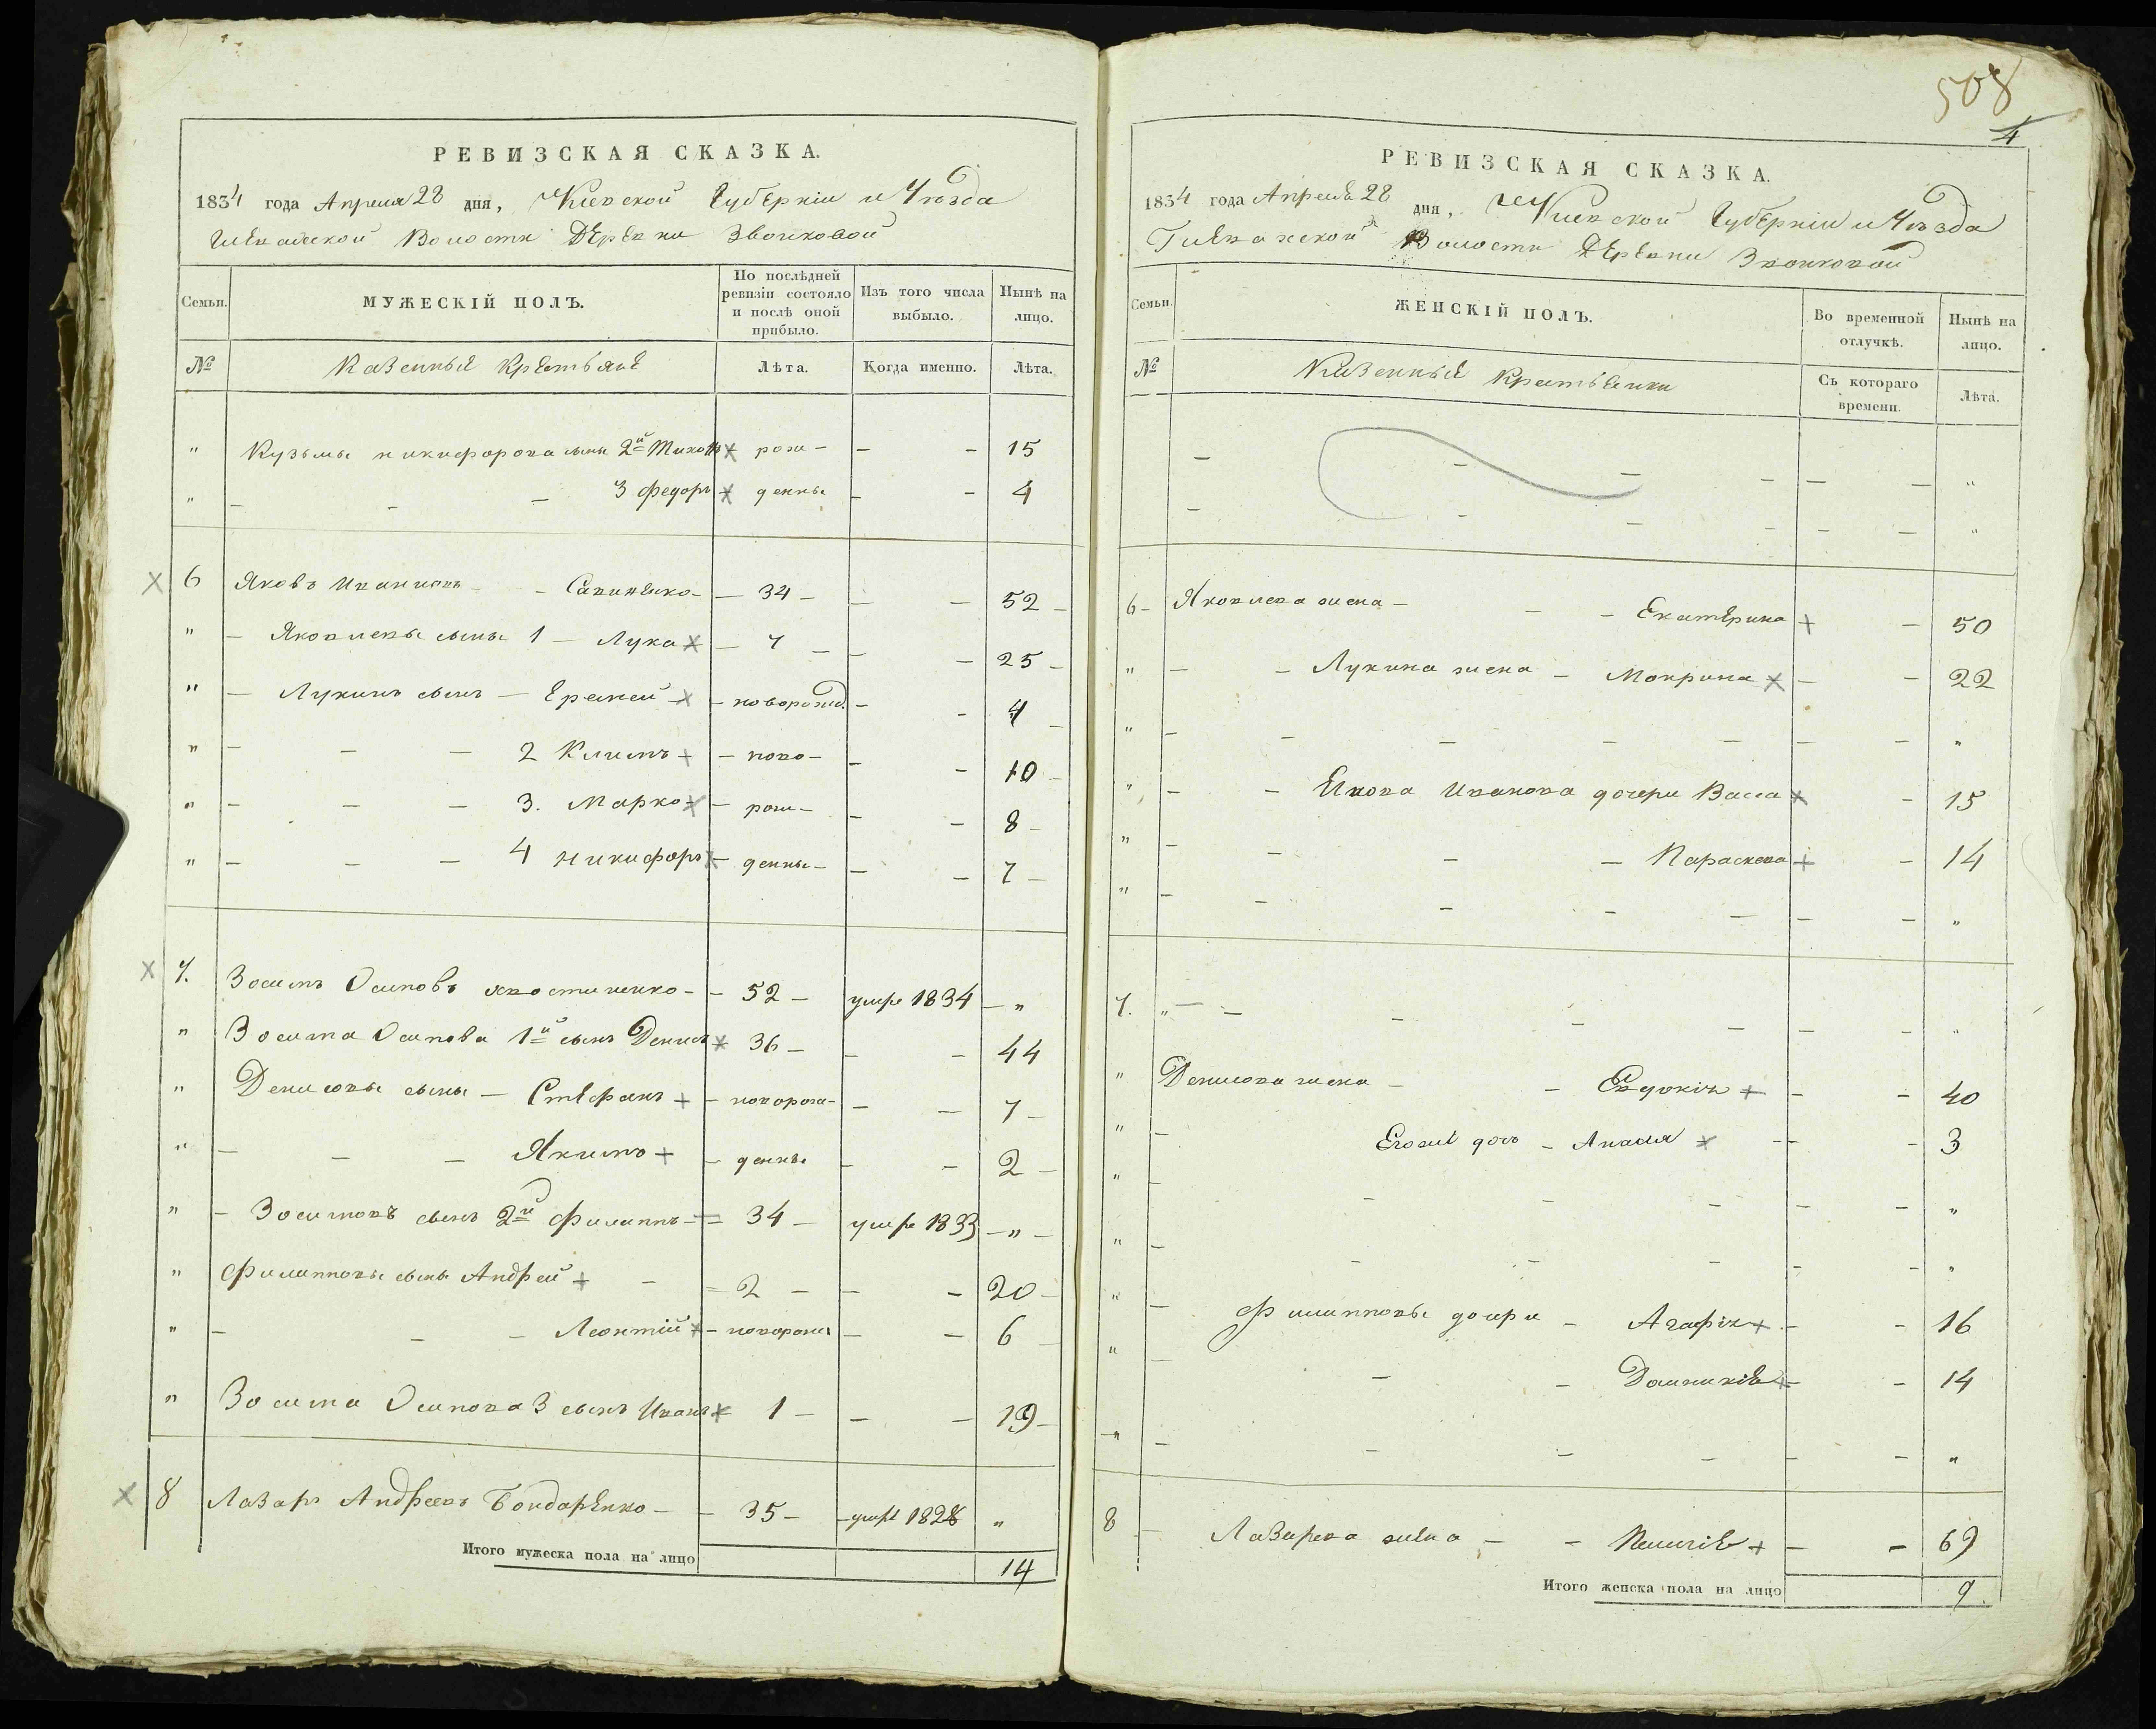 РЕВИЗСКАЯ СКАЗКА.
1834 года Апреля 28 дня, Киевской Губернiи и Уѣзда
Волости Деревни Звонковой
Семьи.
МУЖЕСКIЙ ПОЛЪ.
По послѣдней ревизiи состояло и послѣ оной прибыло.
Изъ того числа выбыло.
Нынѣ на лицо.
№
Казенные Крестьяне
Лѣта.
Когда именно.
Лѣта.
" Кузьмы Никифорова сынъ 2й рож - - - 15
" - - - 3 Федоръ денны - - 4
6 Яковъ Ивановъ - - Савиненко - - 34 - - - 52 -
" - Яковлевы сыны 1 - Лука - 7 - - - 25 -
" - Лукинъ сынъ - Еремей - новорожд. - - 4 -
" - - - 2 Климъ - ново - - - 10 -
" - - - 3. Марко - рож - - - 8 -
" - - - 4 Никифоръ - денны - - - 7 -
7. Зосимъ Осиповъ - - 52 - умре 1834 - "
" Зосима Осипова 1й сынъ Денисъ 36 - - - 44
" Денисовы сыны - Стефанъ -новорож - - - 7 -
" - - - Якимъ - денны - - 2 -
" - Зосимовъ сынъ 2й Филиппъ - 34 - умре 1833 - " -
" Филипповы сыны Андрей - - 2 - - - 20 -
" - - - Леонтiй - новорожд - - 6 -
" Зосима Осипова 3 сынъ Иванъ 1 - - - 19 -
8 Лазарь Андреевъ Бондаренко - - 35 - - умре 1828 "
Итого мужеска пола на лицо 14
508
4
РЕВИЗСКАЯ СКАЗКА.
1834 года Апреля 28 дня, Киевской Губернiи и Уѣзда
Волости Деревни Звонковой
Семьи.
ЖЕНСКIЙ ПОЛЪ.
Во временной отлучкѣ.
Нынѣ на лицо.
№
Казенные Крестьянки
Съ котораго времени.
Лѣта.
- - - - - - "
- - - - - - "
6 - Яковлева жена - - - Екатерина - 50
" - - Лукина жена - Мокрина - - 22
" - - - - - - - "
" - - Якова Иванова дочери Васса - 15
" - - - - Параскева - 14
" - - - - - - - "
7. " - - - - - - - "
" Денисова жена - - Евдокiя - - 40
" - Егоже дочь - - - 3
" - - - - - - "
" - - - - - - "
" - Филипповы дочери - Агафiя - - 16
" - - - - 14
" - - - - - - "
8 - Лазарева жена - - - - 69
Итого женска пола на лицо 9.